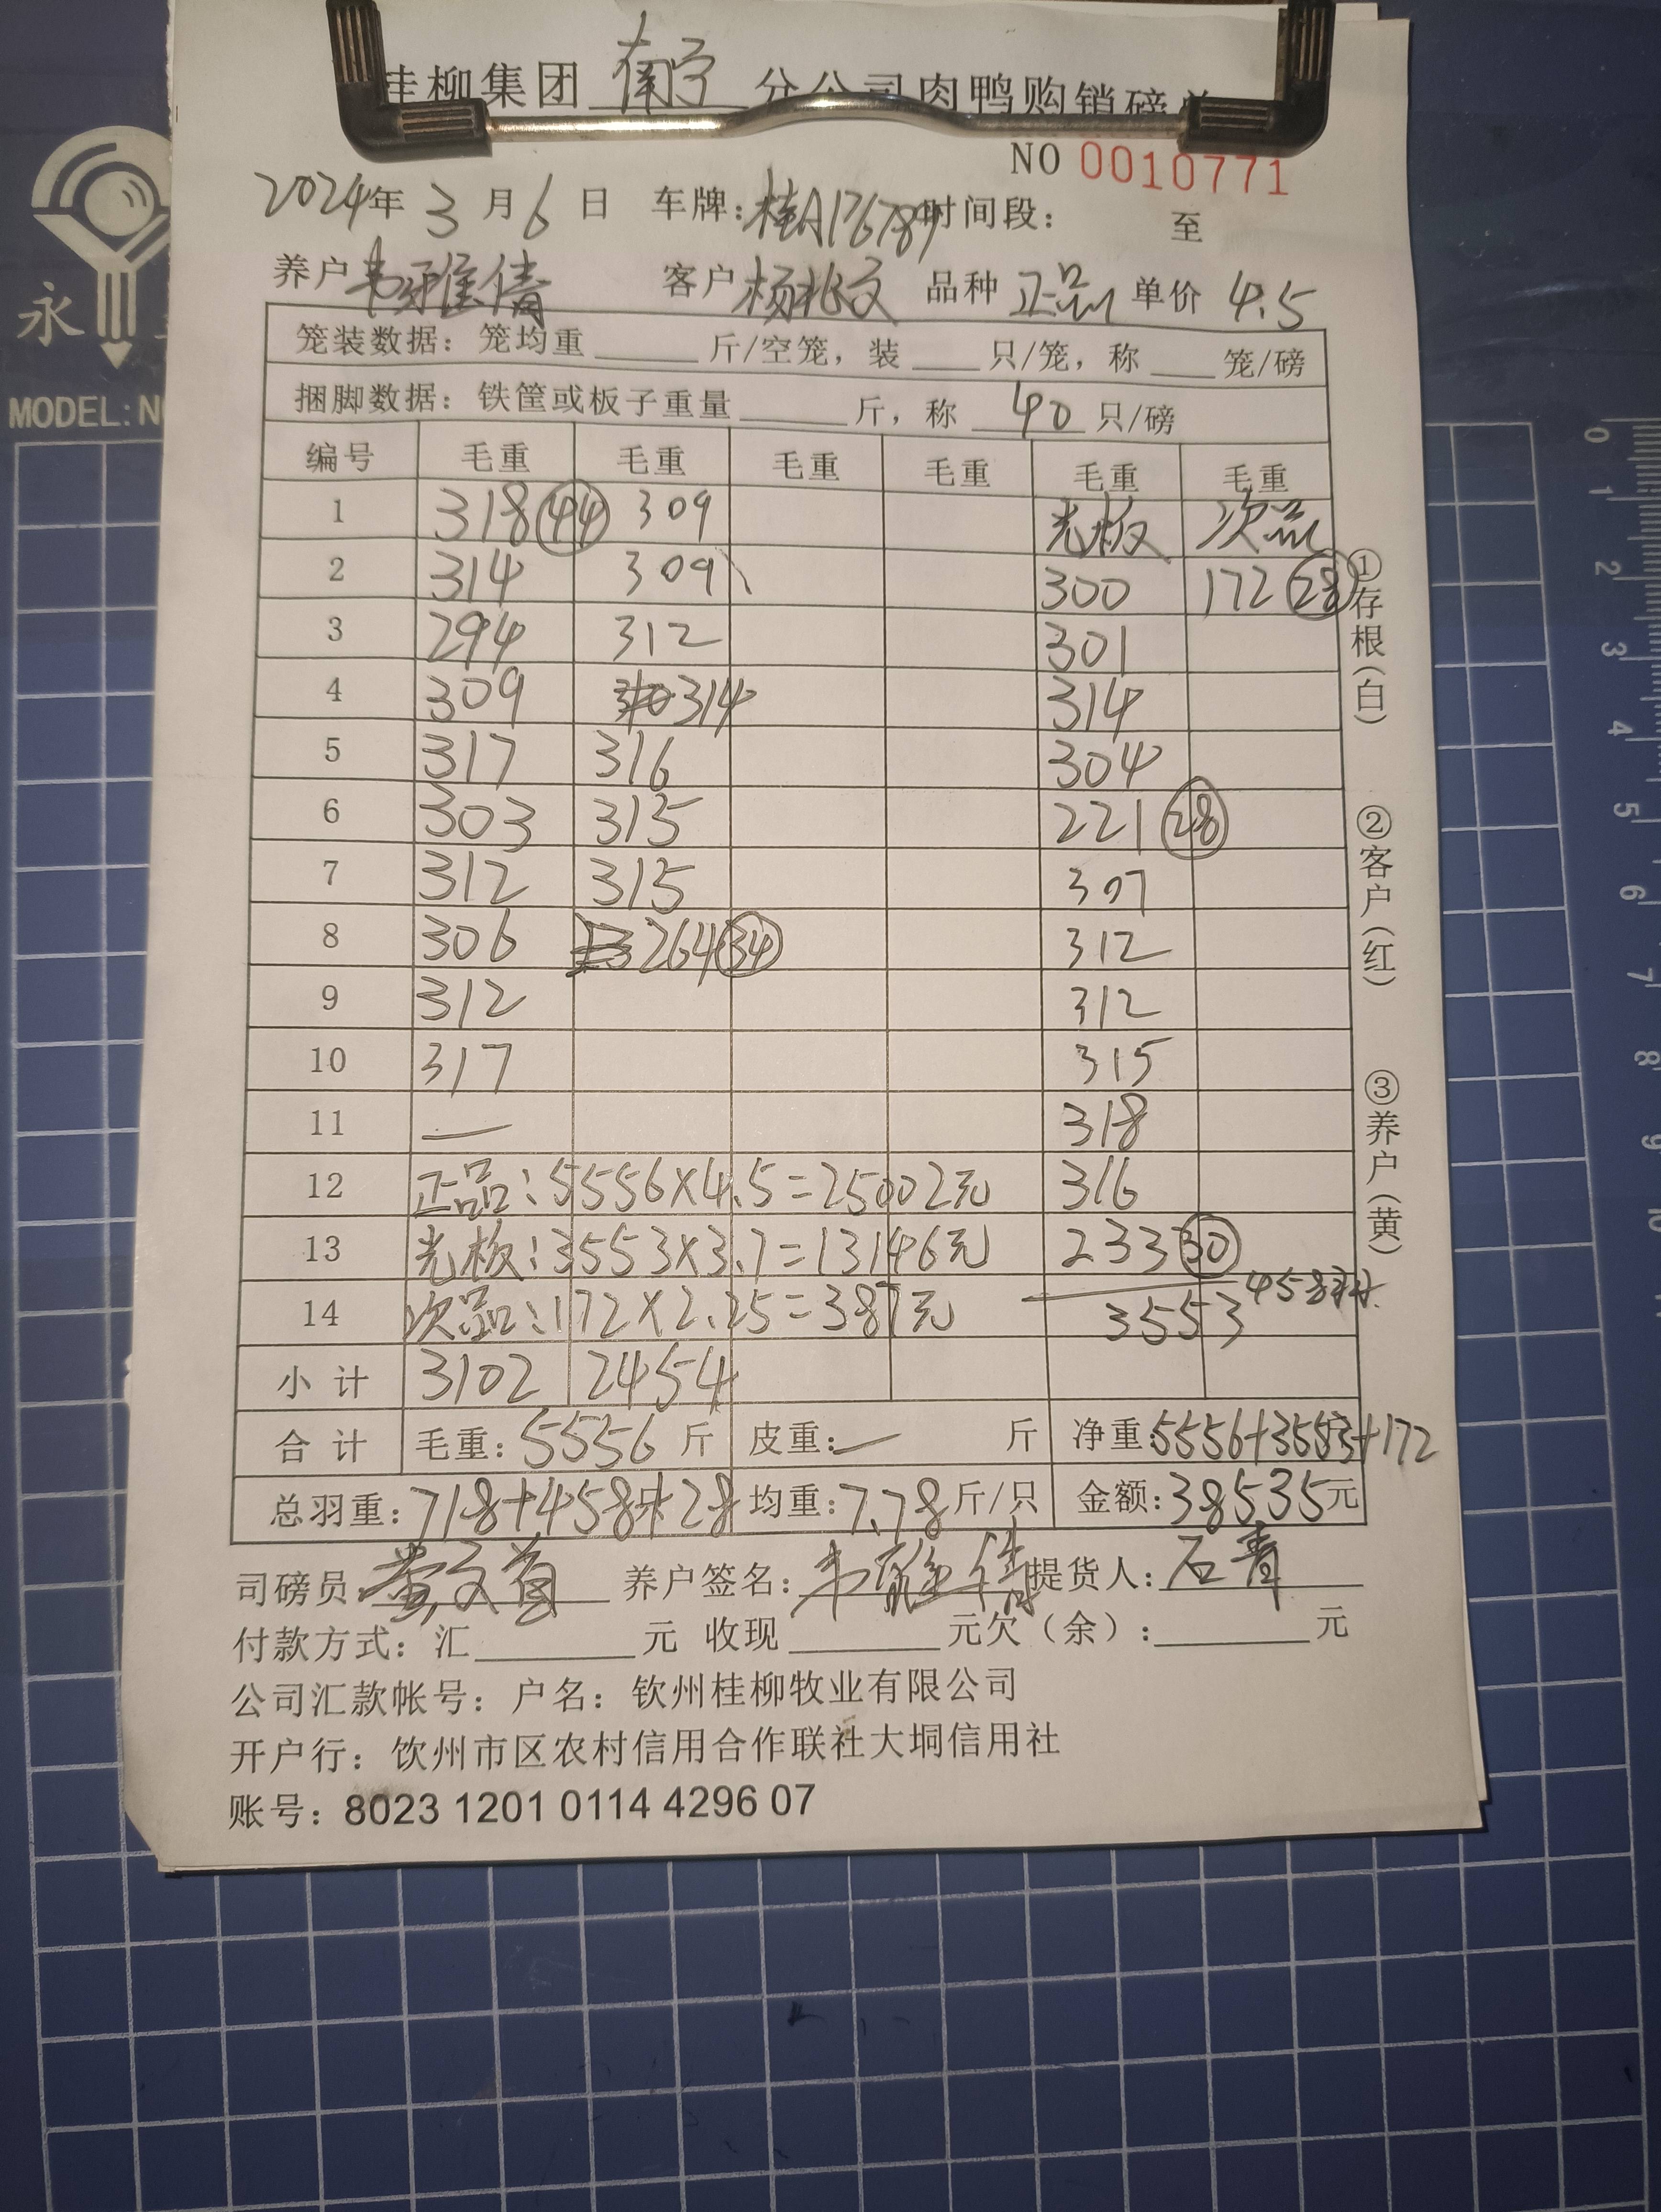 桂柳集团 南宁 分公司肉鸭购销磅单
NO 0010771
2024年 3 月 6 日 车牌: 时间段: 至
养户 韦雅倩 客户 品种 正品 单价 4.5
笼装数据: 笼均重 斤/空笼, 装 只/笼, 称 笼/磅
捆脚数据: 铁筐或板子重量 斤, 称 40 只/磅
编号 毛重 毛重 毛重 毛重 毛重 毛重
1 318 (44) 309 光板 次品
2 314 309 300 172 (28)
3 294 312 301
4 309 314 314
5 317 316 304
6 303 315 221 (28)
7 312 315 307
8 306 264 (34) 312
9 312 312
10 317 315
11 — 318
12 正品:5556×4.5=25002元 316
13 光板:3553×3.7=13146元 233 (30)
14 次品:172×2.25=387元 3553 458只
小计 3102 2454
合计 毛重: 5556 斤 皮重: — 斤 净重: 5556+3553+172
总羽重: 718+458+28 均重: 7.78 斤/只 金额: 38535元
司磅员 养户签名: 韦雅倩 提货人: 石青
付款方式: 汇 元 收现 元欠(余): 元
公司汇款帐号: 户名: 钦州桂柳牧业有限公司
开户行: 饮州市区农村信用合作联社大垌信用社
账号: 8023 1201 0114 4296 07
①存根(白) ②客户(红) ③养户(黄)
永
MODEL:N
0
1
2
3
4
5
6
7
8
9
10